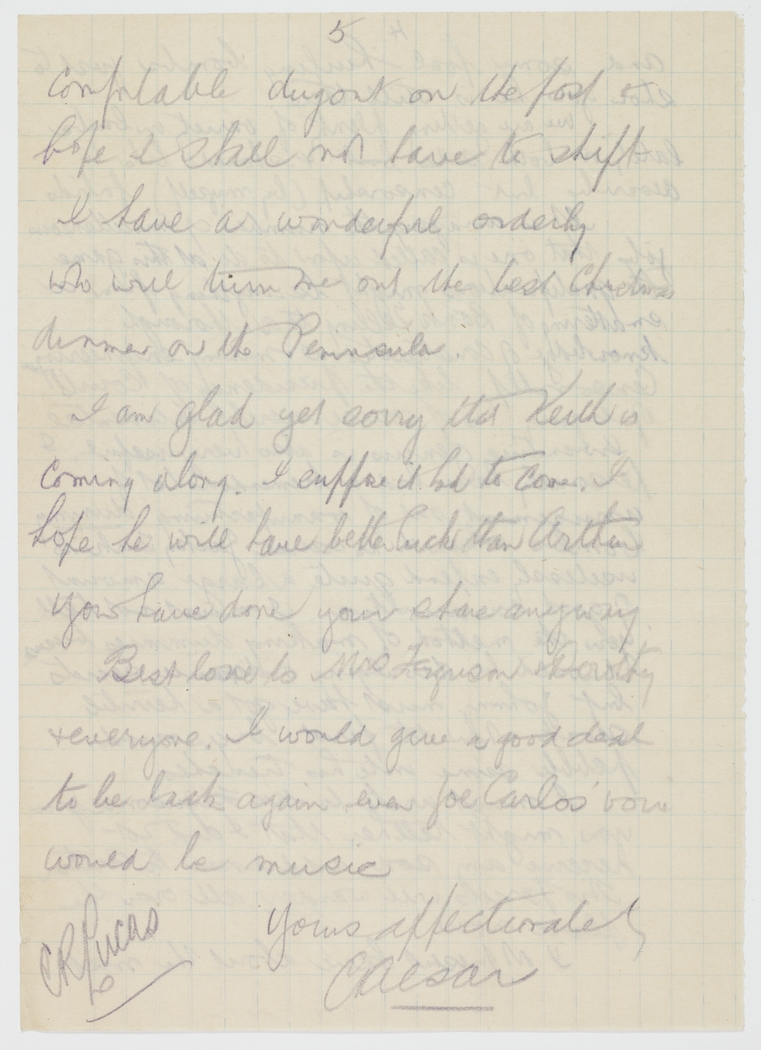 5
comfortable dugout on the post &
hope I shall not have to shift
I have a wonderful orderly
who will turn me out the best Christmas
dinner on the Peninsula.
I am glad yet sorry that Keith is
coming along. I suppose it had to come. I
hope he will have better luck than Arthur
You have done your share anyway.
Best love to Mrs Ferguson Dorothy
& everyone. I would give a good deal
to be back again even Joe Carlos' voice
would be music
Yours affectionately
Caesar
CR Lucas